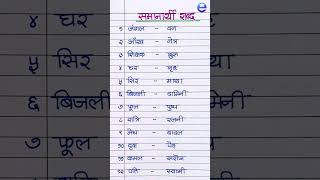 समानार्थी शब्द
१ जंगल - वन
२ आँख - नेत्र
३ शिक्षक - गुरु
४ घर - गृह
५ सिर - माथा
६ बिजली - दामिनी
७ फूल - पुष्प
८ रात्रि - रजनी
९ मेघ - बादल
१० वृक्ष - पेड़
११ कमल - सरोज
१२ पति - स्वामी
४ घर
५ सिर
६ बिजली
७ फूल